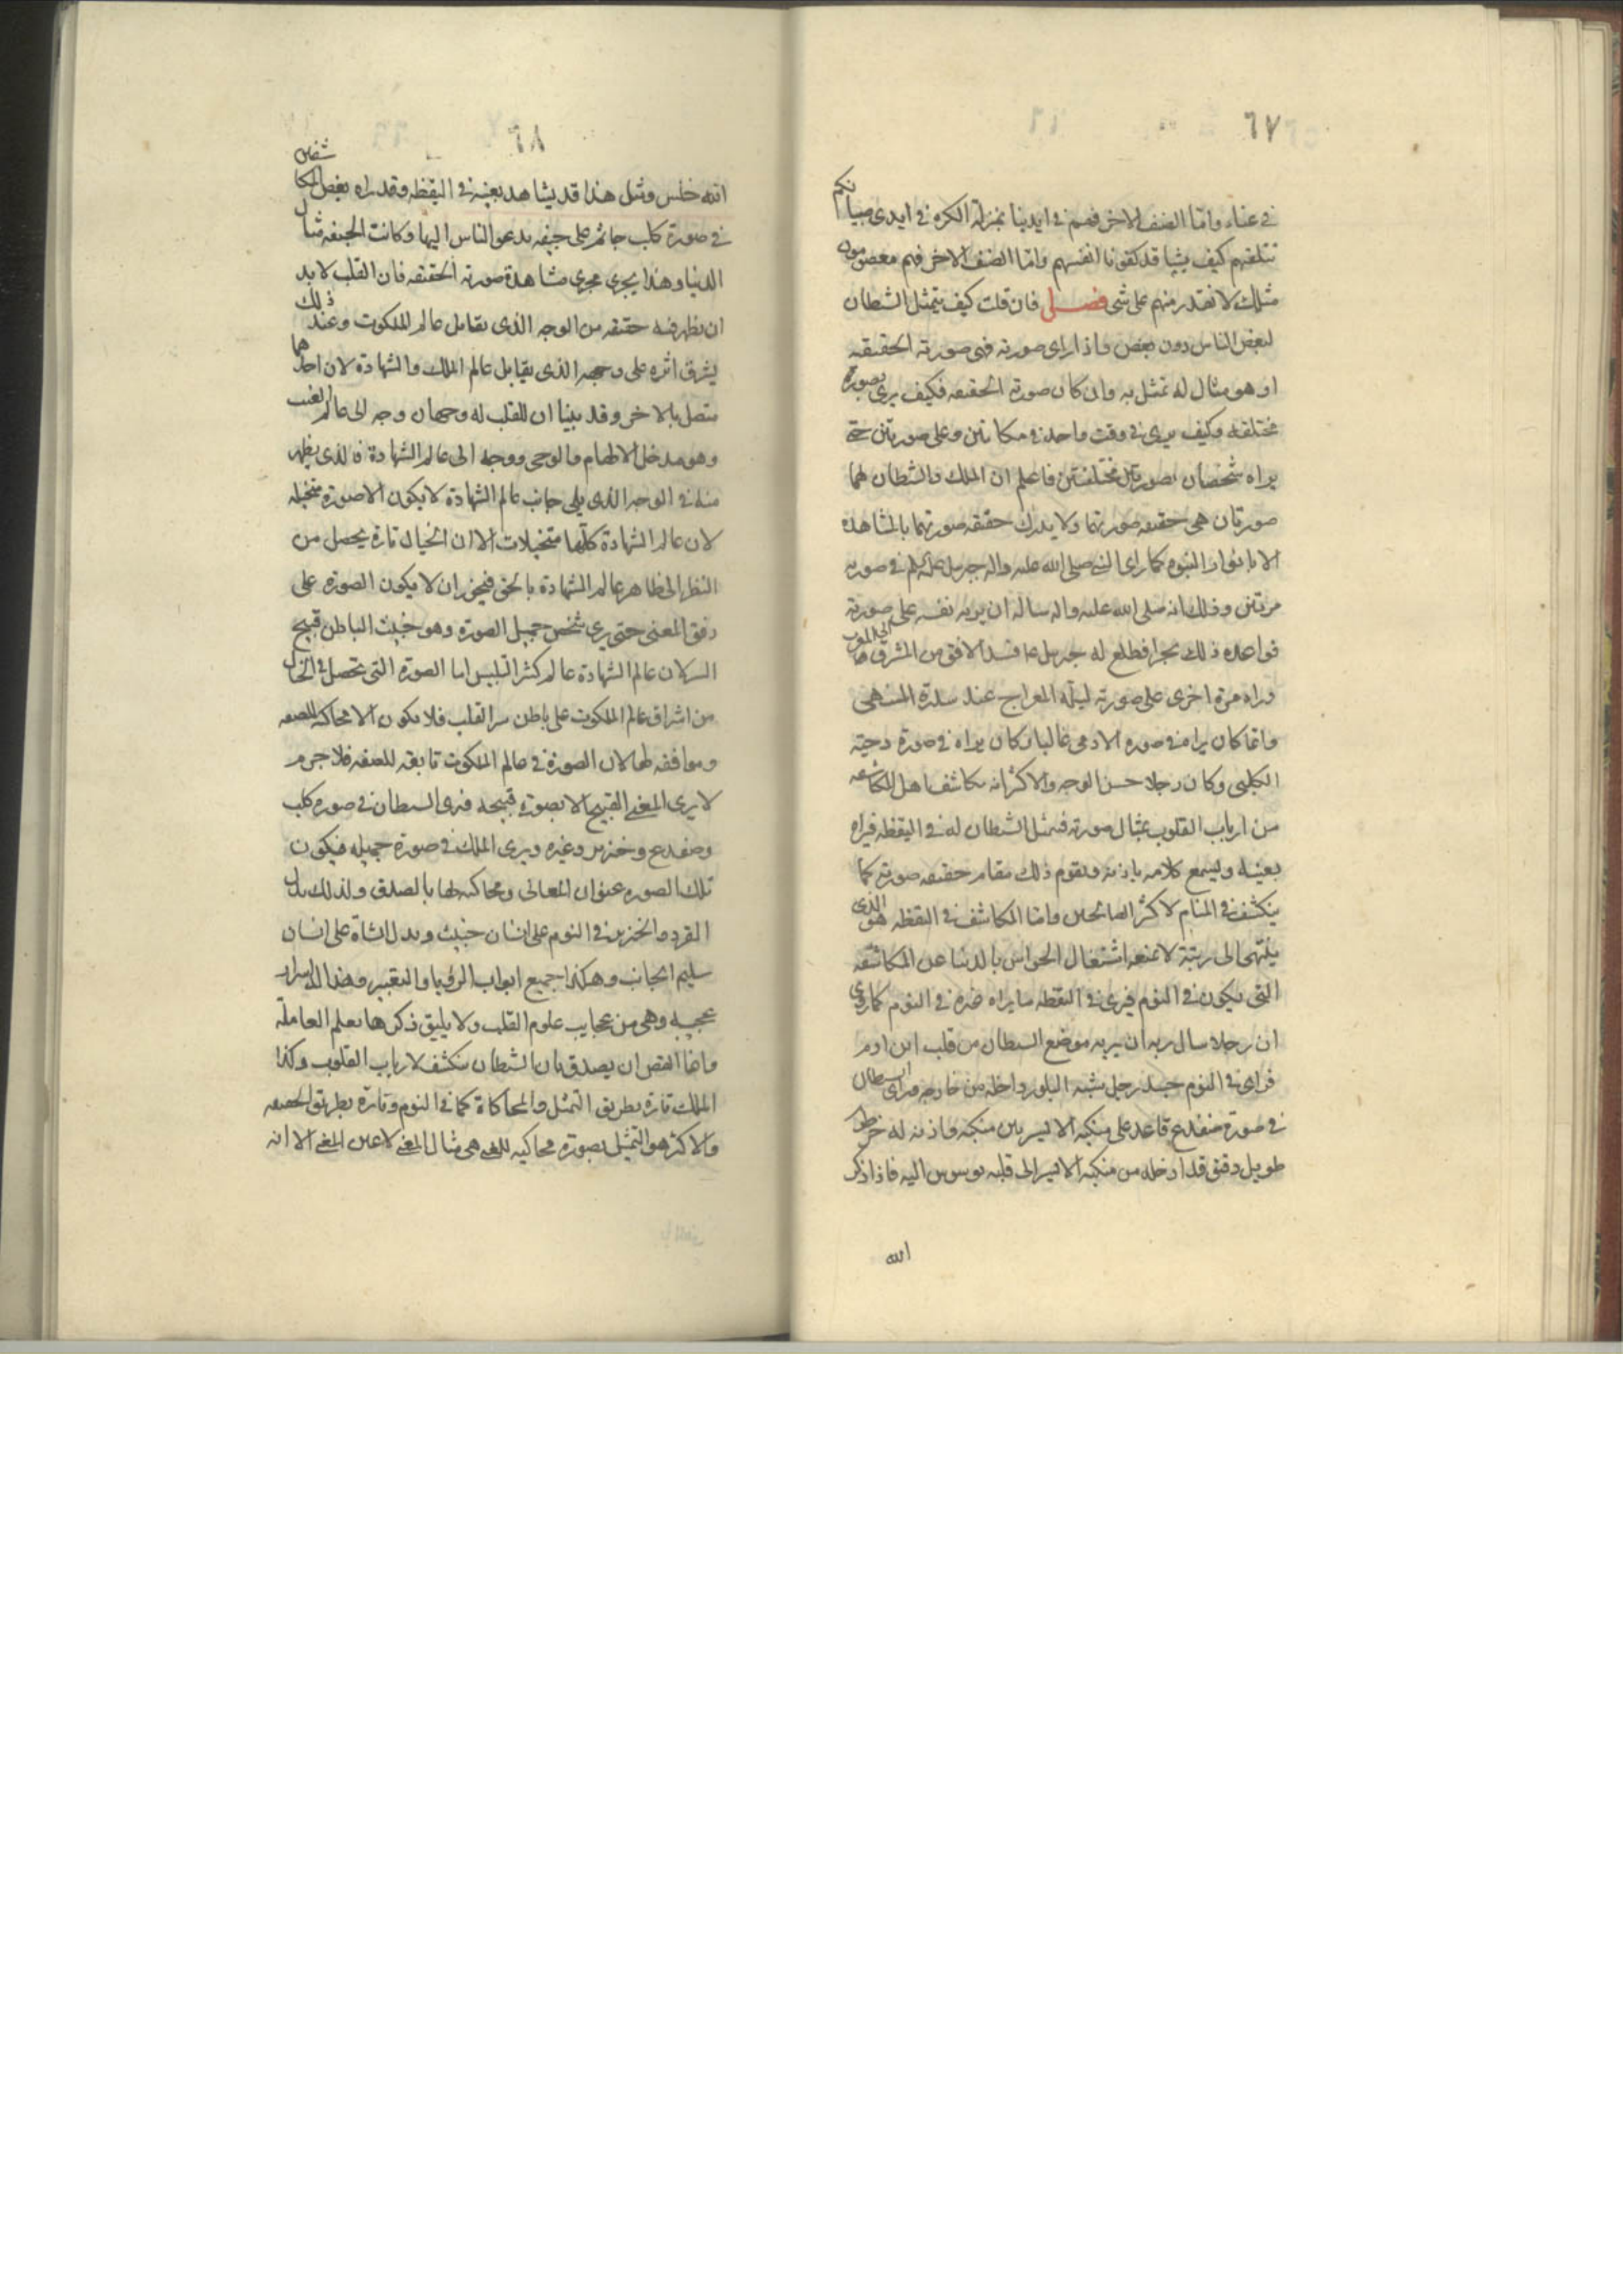 ٦٧
في عناء واما الصنف الاخر فهم في ايدينا بمنزلة الكره في ايدى صبيانكم
نتلقفهم كيف يشيا قد كفونا انفسهم واما الصنف الاخر فهم معصومون
مثلك لا نقدر منهم على شى فصل فان قلت كيف يتمثل الشطان
لبعض الناس دون بعض واذا راى صورته فهى صورته الحقيقيه
او هو مثال له تمثل به وان كان صورته الحقيقه فكيف يرى بصوره
مختلفه وكيف يرى في وقت واحد في مكانين وعلى صورتين حتى
يراه شخصان بصورتين مختلفتين فاعلم ان الملك والشطان لهما
صورتان هى حقيقه صورتهما ولا يدرك حقيقه صورتهما بالمشاهده
الا بانوار النبوه كما راى النبى صلى الله عليه واله جبرئيل عليه السلم في صورته
مرتين وذلك انه صلى الله عليه واله ساله ان يريه نفسه على صورته
فواعده ذلك بحرا فطلع له جبرئيل عا فسد الافق من المشرق الى المغرب
وراه مرة اخرى على صورته ليلة المعراج عند سدرة المنتهى
وانما كان يراه في صوره الادمى غالبا كان يراه في صورة دحية
الكلبى وكان رجلا حسن الوجه والاكثر انه يكاشف اهل المكاشفه
من ارباب القلوب بمثال صورته فيمثل الشطان له في اليقظه فيراه
بعينه ويسمع كلامه باذنه ويقوم ذلك مقام حقيقه صورته كما
ينكشف في المنام لاكثر الصالحين وانما المكاشف في اليقظه هو الذى
ينتهى الى رتبة لا تمنعه اشتغال الحواس بالدنيا عن المكاشفه
التى يكون في النوم فيرى في اليقظه ما يراه غيره في النوم كما روى
ان رجلا سال ربه ان يريه موضع الشطان من قلب ابن ادم
فراى في النوم جسد رجل يشبه البلور داخله من خارجه وراى الشطان
في صورة ضفدع قاعد على منكبه الايسر بين منكبه واذنه له خرطوم
طويل دقيق قد ادخله من منكبه الايسر الى قلبه يوسوس اليه فاذا ذكر
الله
٦٨
الله خنس ومثل هذا قد يشاهد بعينه في اليقظه وقد راه بعض المكاشفين
في صورة كلب جاثم على جيفه يدعو الناس اليها وكانت الجيفه مثال
الدنيا وهذا يجرى مجرى مشاهدة صورته الحقيقه فان القلب لابد
ان يظهر فيه حقيقه من الوجه الذى يقابل عالم الملكوت وعند ذلك
يشرق اثره على وجهه الذى يقابل عالم الملك والشهادة لان احدهما
متصل بالاخر وقد بينا ان للقلب له وجهان وجه الى عالم الغيب
وهو مدخل الالهام والوحى ووجه الى عالم الشهادة فالذى يظهر
منه في الوجه الذى يلى جانب عالم الشهادة لا يكون الا صورة متخيله
لان عالم الشهادة كلها متخيلات الا ان الخيال تارة يحصل من
النظر الى ظاهر عالم الشهادة بالحق فيجوز ان لا يكون الصوره على
وفق المعنى حتى يرى شخص جميل الصوره وهو خبيث الباطن قبيح
السر لان عالم الشهادة عالم كثير التلبيس اما الصورة التى تحصل في الخيال
من اشراق عالم الملكوت على باطن سر القلب فلا يكون الا محاكيه للصفه
وموافقه لها لان الصورة في عالم الملكوت تابعه للصفه فلا جرم
لا يرى المعنى القبيح الا بصورة قبيحه فيرى الشطان في صوره كلب
وضفدع وخنزير وغيره ويرى الملك في صورة جميله فيكون
تلك الصوره عنوان المعانى ومحاكيه لها بالصدق ولذلك يدل
القرد والخنزير في النوم على انسان خبيث ويدل الشاة على انسان
سليم الجانب وهكذا جميع ابواب الرؤيا والتعبير وهذا اسرار
عجيبه وهى من عجايب علوم القلب ولا يليق ذكرها بعلم المعاملة
وانما القصد ان يصدق بان الشطان ينكشف لارباب القلوب وكذا
الملك تارة بطريق التمثل والمحاكاة كما في النوم وتارة بطريق الحقيقه
والاكثر هو التمثيل بصورة محاكيه للمعنى هى مثال المعنى لا عين المعنى الا انه